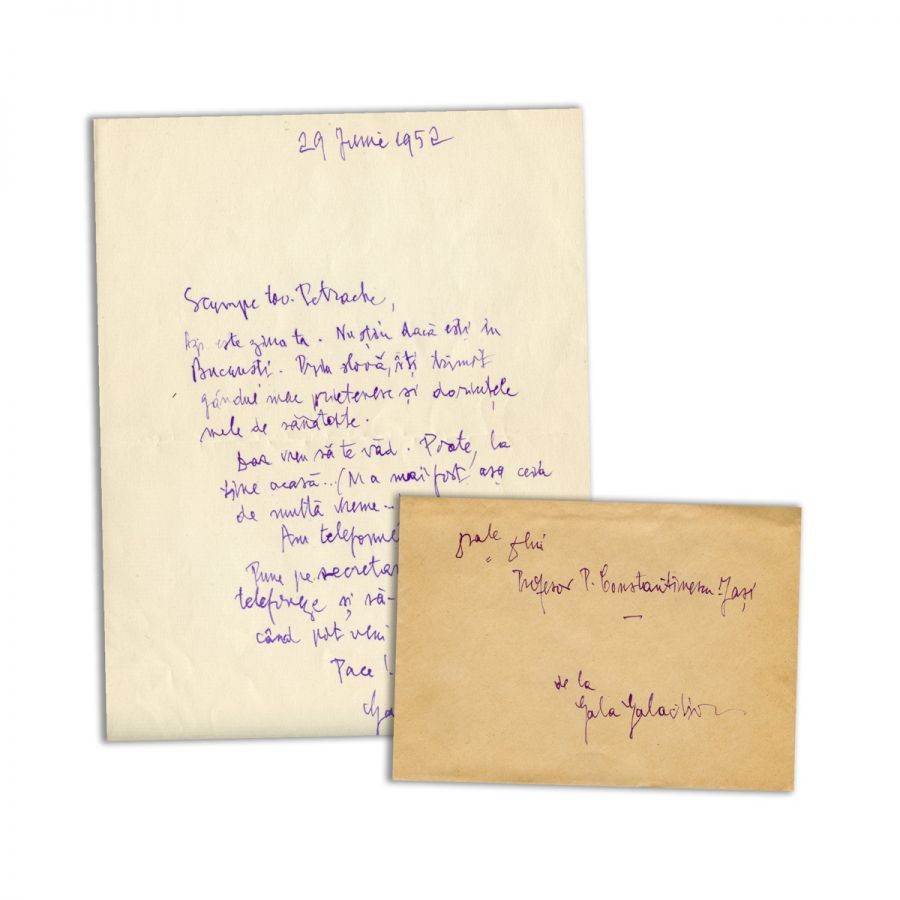 29 Junie 1952
Scumpe tov. Petrache,
Azi este ziua ta. Nu știu dacă ești în
București. Prin slovă, îți trimit
gândul meu prietenesc și dorințele
mele de sănătate.
Dar vreu să te văd. Poate, la
tine acasă... (N'a mai fost așa ceva
de multă vreme...
Am telefon
Pune pe secretar
telefoneze și să-
când pot veni
Pace!
Ga
D-sale
Profesor P. Constantinescu-Jași
de la
Gala Galaction